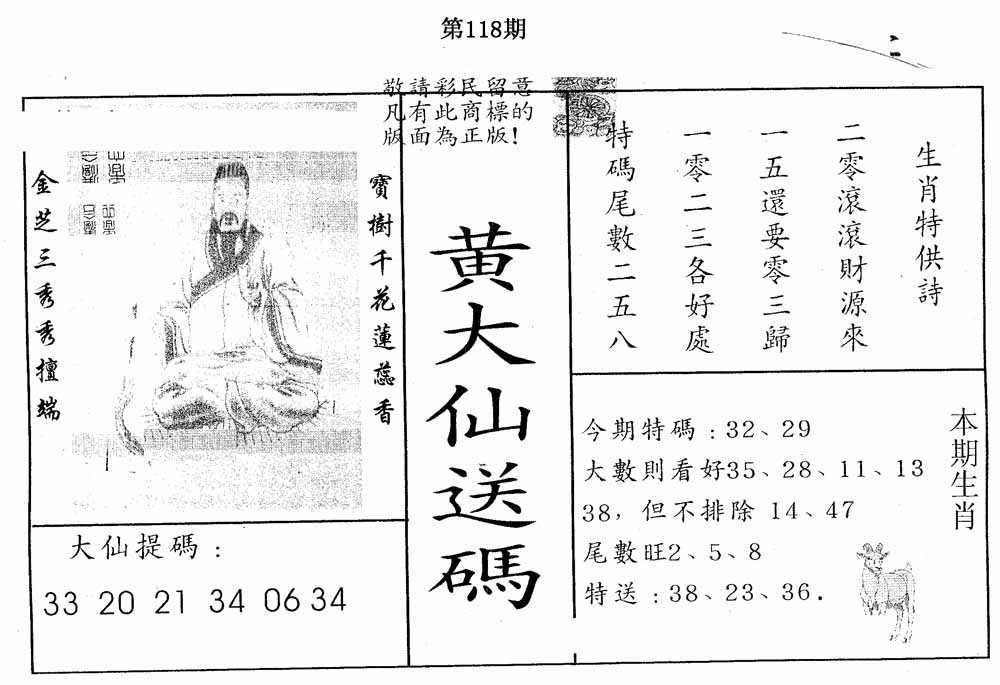 第118期
敬請彩民留意
凡有此商標的
版面為正版！
金芝三秀秀擅端
寶樹千花蓮蕊香
大仙提碼：
33 20 21 34 06 34
黃大仙送碼
生肖特供詩
二零滾滾財源來
一五還要零三歸
一零二三各好處
特碼尾數二五八
本期生肖
今期特碼：32、29
大數則看好35、28、11、13
38，但不排除 14、47
尾數旺2、5、8
特送：38、23、36．